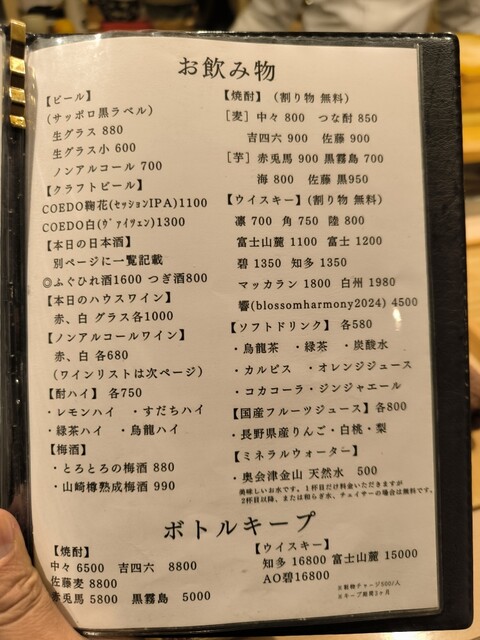 お飲み物
【ビール】
(サッポロ黒ラベル)
生グラス 880
生グラス小 600
ノンアルコール 700
【クラフトビール】
COEDO鞠花(ｾｯｼｮﾝIPA)1100
COEDO白(ｳﾞｧｲﾂｪﾝ)1300
【本日の日本酒】
別ページに一覧記載
◎ふぐひれ酒1600 つぎ酒800
【本日のハウスワイン】
赤、白 グラス各1000
【ノンアルコールワイン】
赤、白 各680
(ワインリストは次ページ)
【酎ハイ】 各750
・レモンハイ ・すだちハイ
・緑茶ハイ ・烏龍ハイ
【梅酒】
・とろとろの梅酒 880
・山崎樽熟成梅酒 990
【焼酎】 (割り物 無料)
［麦］中々 800 つな酎 850
吉四六 900 佐藤 900
［芋］赤兎馬 900 黒霧島 700
海 800 佐藤 黒950
【ウイスキー】(割り物 無料)
凛 700 角 750 陸 800
富士山麓 1100 富士 1200
碧 1350 知多 1350
マッカラン 1800 白州 1980
響(blossomharmony2024) 4500
【ソフトドリンク】 各580
・烏龍茶 ・緑茶 ・炭酸水
・カルピス ・オレンジジュース
・コカコーラ・ジンジャエール
【国産フルーツジュース】各800
・長野県産りんご・白桃・梨
【ミネラルウォーター】
・奥会津金山 天然水 500
美味しいお水です。1杯目だけ料金いただきますが
2杯目以降、または和らぎ水、チェイサーの場合は無料です。
ボトルキープ
【焼酎】
中々 6500 吉四六 8800
佐藤麦 8800
赤兎馬 5800 黒霧島 5000
【ウイスキー】
知多 16800 富士山麓 15000
AO碧16800
※割物チャージ500/人
※キープ期間3ヶ月